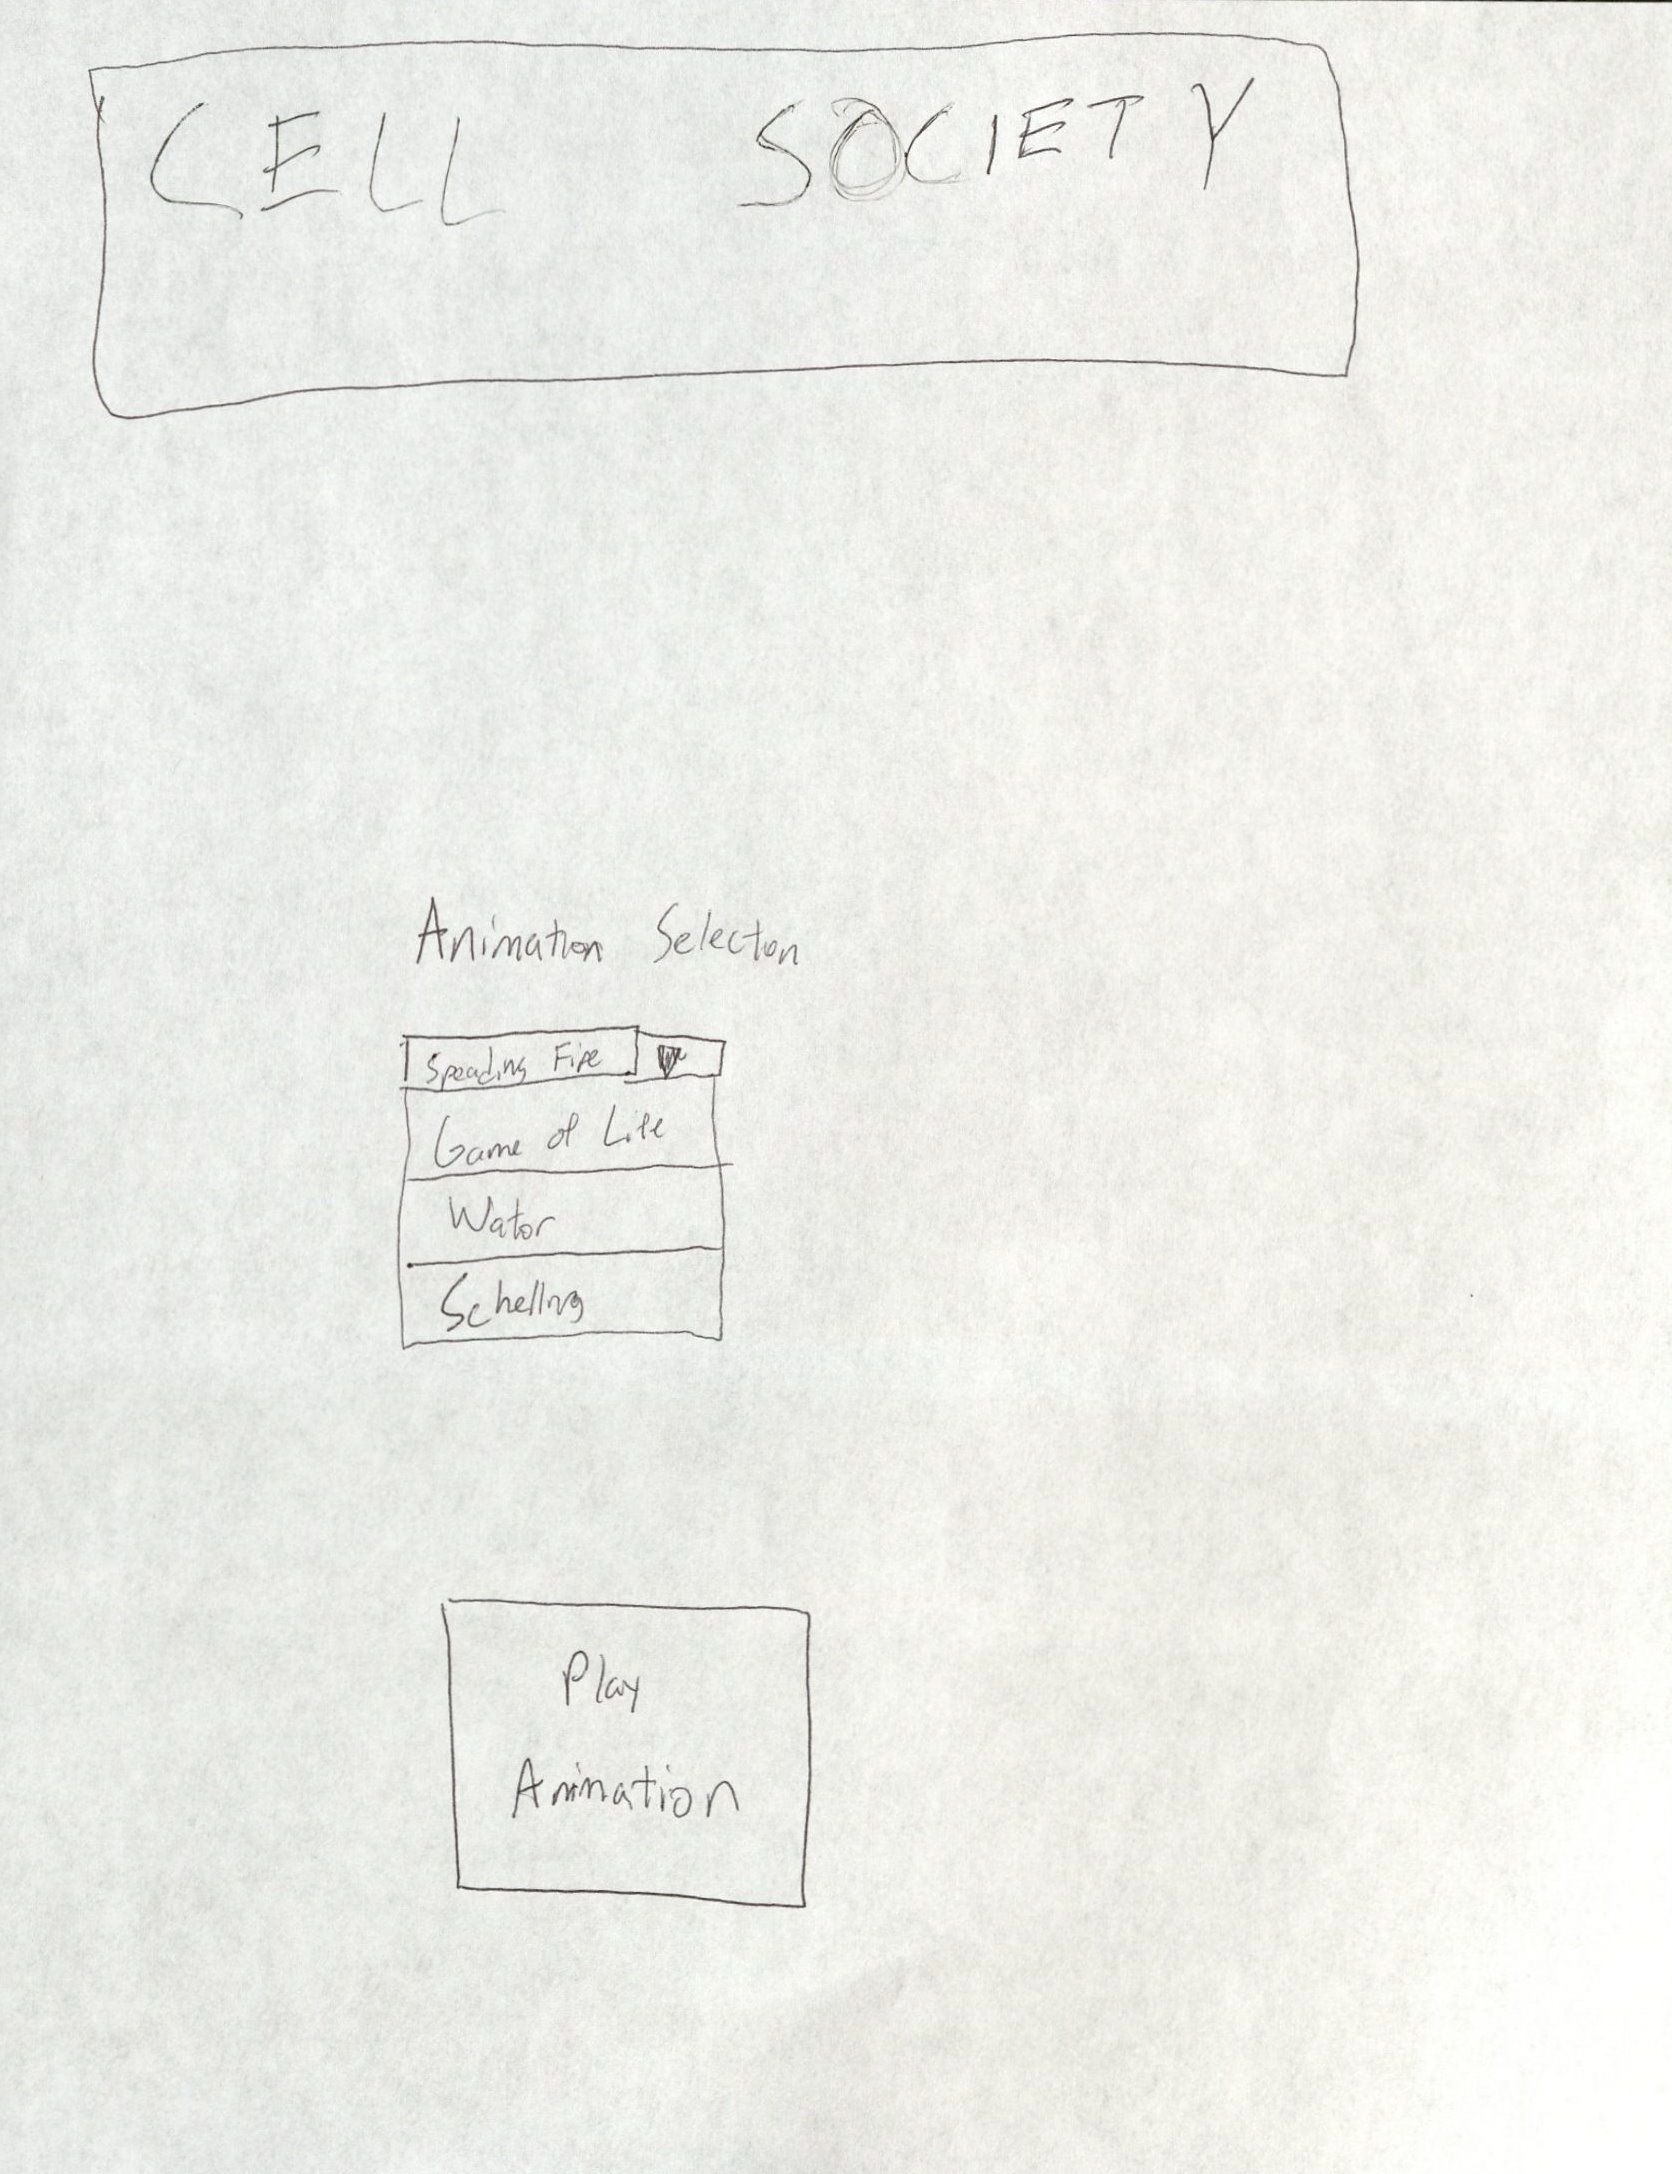 CELL SOCIETY
Animation Selection
Speading Fire
Game of Life
Wator
Schelling
Play
Animation